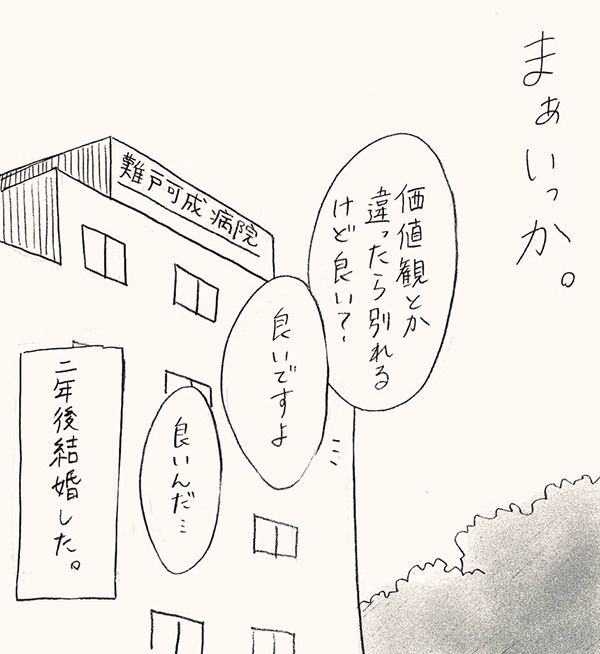 まぁいっか。
価値観とか
違ったら別れる
けど良い?
良いですよ
良いんだ…
二年後結婚した。
難戸可成病院